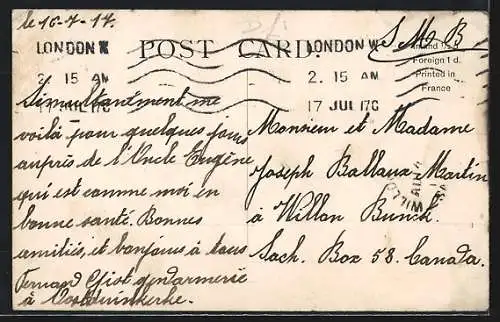 le 16-7-17.
LONDON W
2. 15 AM
17 JUL 17C
POST CARD.
LONDON W
2. 15 AM
17 JUL 17C
S. M. B
Inland
Foreign 1 d.
Printed in
France
me
voilà pour quelques jours
auprès de l'Oncle Eugène
qui est comme moi en
bonne santé. Bonnes
amitiés, et bonjours à tous
Fernand gendarmerie
à Oostduinkerke.
Monsieur et Madame
Joseph Ballaux Martin
à Willon Bunch.
Sach. Box 58. Canada.